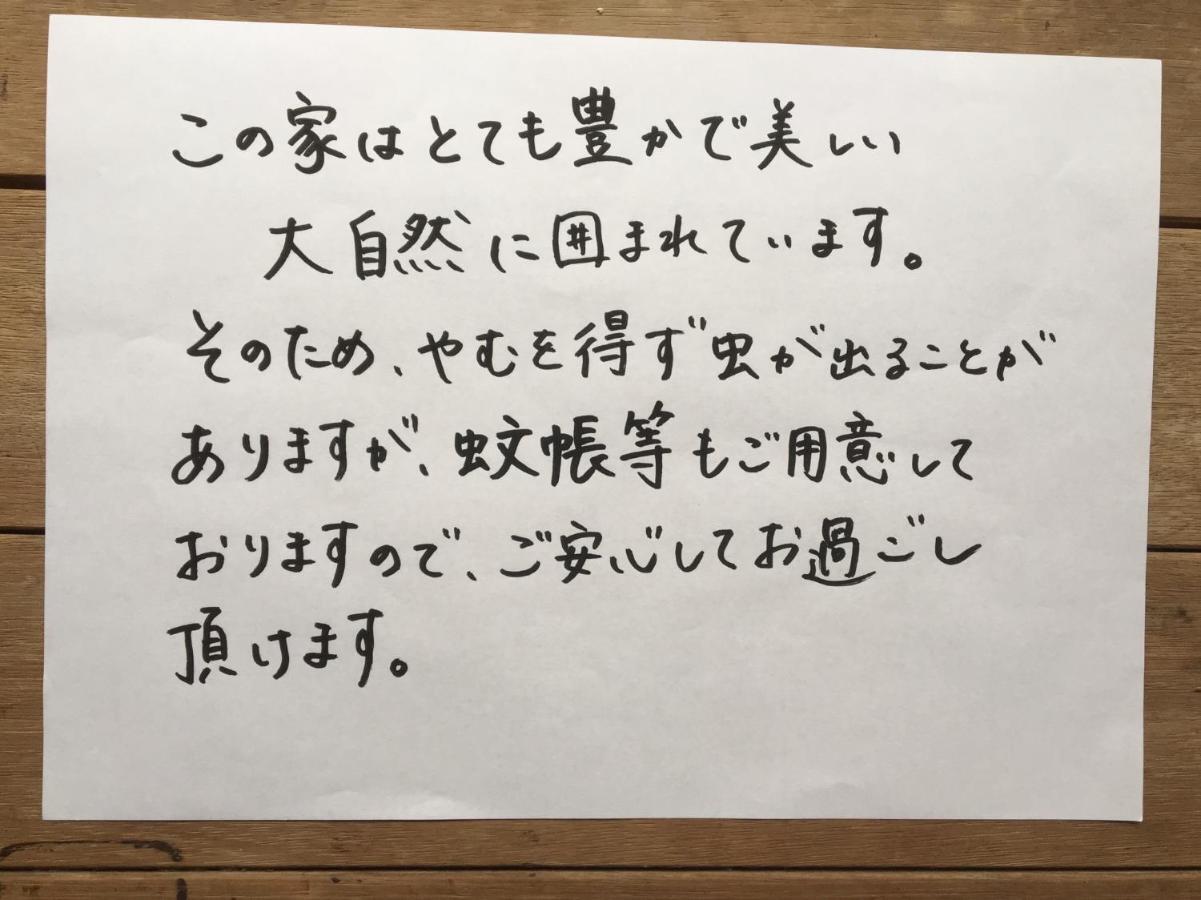 この家はとても豊かで美しい
大自然に囲まれています。
そのため、やむを得ず虫が出ることが
ありますが、蚊帳等もご用意して
おりますので、ご安心してお過ごし
頂けます。